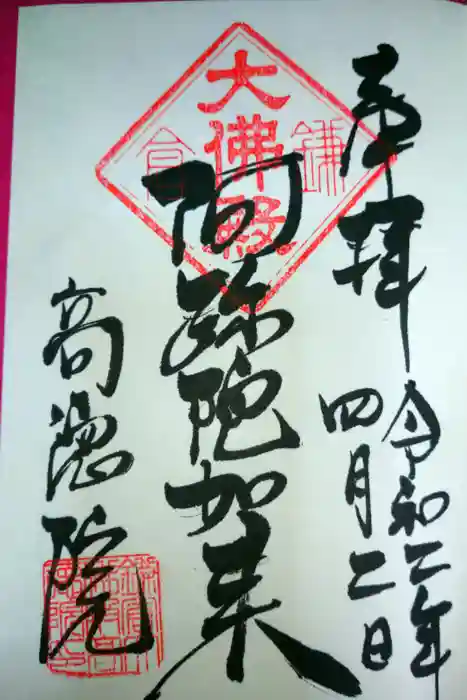 奉拝
令和二年
四月二日
大佛殿
鎌倉
阿弥陀如来
高徳院